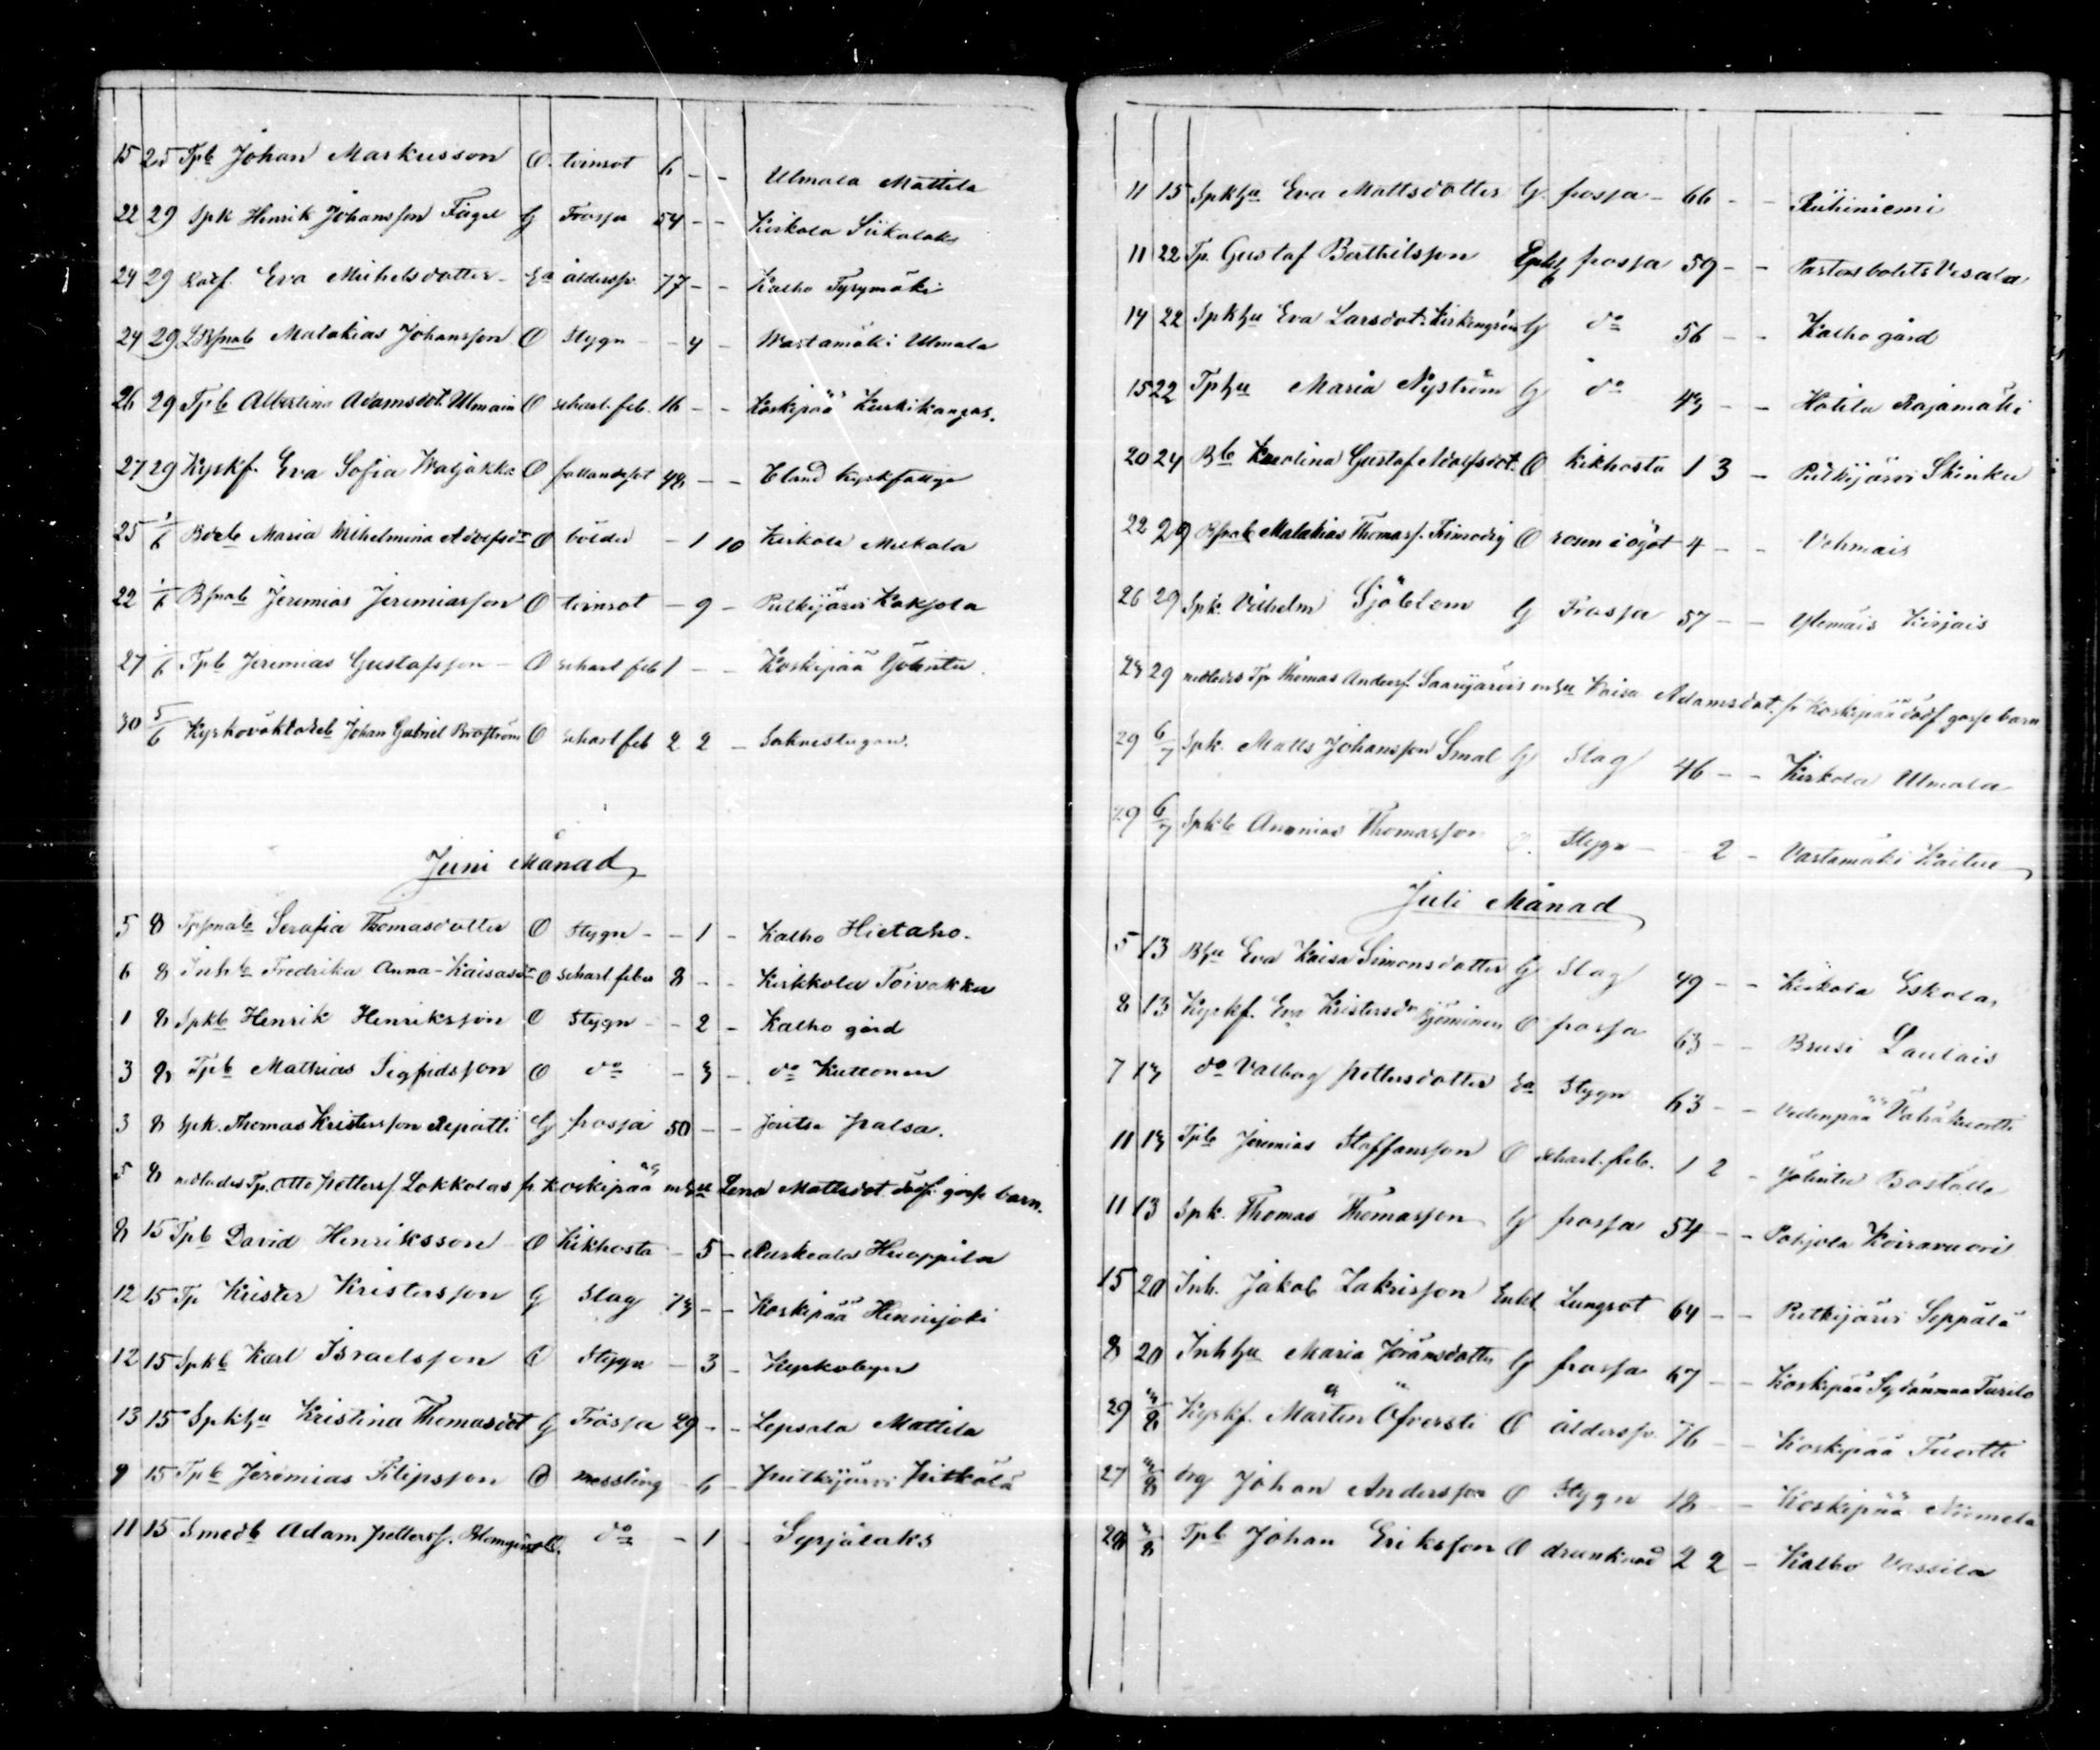 15 25 Tpb Johan Markusson O. tvinsot 6 - - Ulmala Mattila
22 29 Spk Henrik Johansson Fägel G Frossa 54 - - Kirkola Siikalaks
24 29 Rotf. Eva Michelsdotter - Ea åldersp. 77 - - Kalho Tyrymäki
24 29 Malakias Johansson O Stygn - - 4 - Wartamäki Ulmala
26 29 Tpb Albertina Adamsdot. Ulmain O scharl. feb. 16 - - Koskipää Kurkikangas.
27 29 Kyrkf. Eva Sofia Watjakka O fallandesot 48 - - Eland kyrkfattige
25 1/6 Maria Wilhelmina Adolfsdr O bölder - 1 10 Kirkola Mickola
22 1/6 Bsonb Jeremias Jeremiasson O tvinsot - 9 - Putkijärvi Kakjola
27 1/6 Tpb Jeremias Gustafsson - O scharl feb 1 - - Koskipää Yöhntu
30 5/6 Kyrkovaktareb Johan Gabriel Broström O scharl feb 2 2 - Sakrestugan.
Juni Månad
5 8 Tpsonab Serafia Thomasdotter O Stygn - - 1 - Kalho Hietaho.
6 8 Inhb Fredrika Anna-Kaisasdr O scharl feber 8 - - Kirkkola Toivakka
1 8 Spkb Henrik Henriksson O Stygn - - 2 - Kalho gård
3 8 Tpb Mathias Sigfridsson O do - 3 - do Kuttonen
3 8 Spk. Thomas Kristersson Repatti G frossa 50 - - Joutsa Jralsa.
5 8 nedlades Tp. Otto Petterss. Lokkolas fr. Koskipää m hu Lena Mattsdot. dödf. gosse barn.
8 15 Tpb David Henriksson O Kikhosta - 5 - Ruskeala Huoppila
12 15 Tp Krister Kristersson G Slag 73 - - Koskipää Hennijoki
12 15 Spkb Karl Israelsson O Stygn - 3 - Kyrkobyn
13 15 Spkhu Kristina Thomasdot G Frossa 29 - - Lepsala Mattila
9 15 Tpb Jeremias Filipsson O messling - 6 - Putkijärvi Pitkälä
11 15 Smedb Adam Petterss. Blomqvist O. do - 1 - Syrjälaks
11 15 Spkhu Eva Mattsdotter G. frossa - 66 - - Riihiniemi
11 22 Tp. Gustaf Berthilsson Enkl frossa 59 - - Pastorsbolets Vesala
14 22 Spkhu Eva Larsdot. Kirkengren G do 56 - - Kalho gård
15 22 Tphu Maria Nyström G do 43 - - Hotila Rajamäki
20 24 Bb Karolina Gustaf Adolfsdot. O Kikhosta 1 3 - Putkijärvi Skinku
22 29 Bsonb Malakias Thomass. Frimodig O rosen i ögot 4 - - Vehmais
26 29 Spk. Vilhelm Sjöblom G Frossa 57 - - Ylemais Kirjais
23 29 nedlades Tp. Thomas Anderss. Saarijärvis m hu Kaisa Adamsdot. fr Koskipää dödf gosse barn
29 6/7 Spk. Matts Johansson Smal G Slag 46 - - Kirkola Ulmala
29 6/7 Spkb Ananias Thomasson O. Stygn - - 2 - Vartamäki Kaitue
Juli Månad
5 13 Bhu Eva Kaisa Simonsdotter G Slag 49 - - Kirkola Eskola
8 13 Kyrkf. Eva Kristersdr O frossa 63 - - Brusi Laulais
7 13 do Valborg Pettersdotter Ea Stygn 63 - - Vedenpää Vähäkuortti
11 13 Tpb Jeremias Staffansson O scharl. feb. 1 2 - Yöhntu Bostalle
11 13 Spk. Thomas Thomasson G frossa 54 - - Pohjola Koiravuori
15 20 Inh. Jakob Zakrisson Enkl Lungsot 64 - - Putkijärvi Seppälä
8 20 Inhhu Maria Jöransdotter G frossa 67 - - Koskipää Sydänmaa Turilo
29 3/8 Kyrkf. Mårten Öfversti O åldersp. 76 - - Koskipää Tuortti
27 3/8 drg Johan Andersson O Stygn 18 - - Koskipää Niemela
28 3/8 Tpb Johan Eriksson O drunknad 2 2 - Kalho Vassila